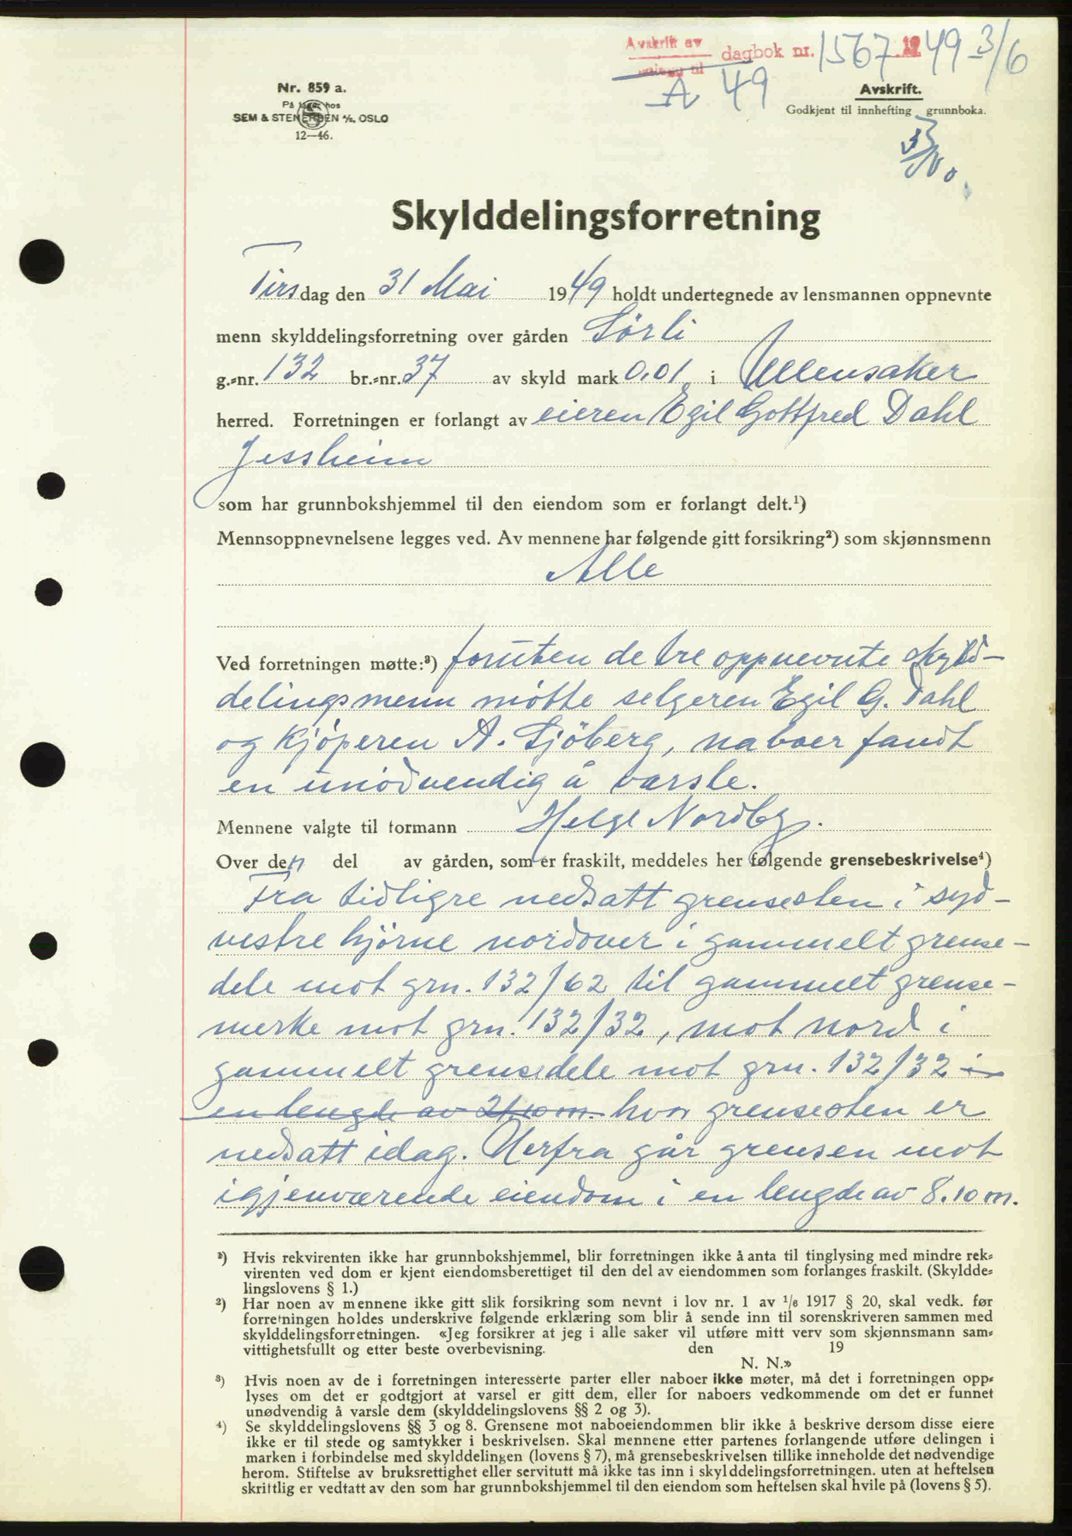 Avskrift av dagbok nr. 1567 1949 3/6
A 49
Nr. 859 a.
På lager hos
SEM & STENERSEN A/S, OSLO
12—46.
Avskrift.
Godkjent til innhefting i grunnboka.
Skylddelingsforretning
Tirsdag den 31 Mai 1949 holdt undertegnede av lensmannen oppnevnte
menn skylddelingsforretning over gården Sörli
g.-nr. 132 br.-nr. 37 av skyld mark 0,01 i Ullensaker
herred. Forretningen er forlangt av eieren Egil Gottfred Dahl
Jessheim
som har grunnbokshjemmel til den eiendom som er forlangt delt.¹)
Mennsoppnevnelsene legges ved. Av mennene har følgende gitt forsikring²) som skjønnsmenn
Alle
Ved forretningen møtte:³) foruten de tre oppnevnte skyld-
delingsmenn mötte selgeren Egil G. Dahl
og kjöperen A. Sjöberg, naboer fandt
en unödvendig å varsle.
Mennene valgte til formann Helge Nordby.
Over den del av gården, som er fraskilt, meddeles her følgende grensebeskrivelse⁴)
Fra tidligre nedsatt grensesten i syd-
vestre hjörne nordover i gammelt grense-
dele mot grn. 132/62 til gammelt grense-
merke mot grn. 132/32, mot nord i
gammelt grensedele mot grn. 132/32 i
en lengde av 21.10 m. hvor grensesten er
nedsatt idag. Herfra går grensen mot
igjenværende eiendom i en lengde av 8.10 m.
²) Hvis rekvirenten ikke har grunnbokshjemmel, blir forretningen ikke å anta til tinglysing med mindre rek-
virenten ved dom er kjent eiendomsberettiget til den del av eiendommen som forlanges fraskilt. (Skyldde-
lingslovens § 1.)
²) Har noen av mennene ikke gitt slik forsikring som nevnt i lov nr. 1 av 1/6 1917 § 20, skal vedk. før
forretningen holdes underskrive følgende erklæring som blir å sende inn til sorenskriveren sammen med
skylddelingsforretningen. «Jeg forsikrer at jeg i alle saker vil utføre mitt verv som skjønnsmann sam-
vittighetsfullt og etter beste overbevisning. den 19
N. N.»
³) Hvis noen av de i forretningen interesserte parter eller naboer ikke møter, må det i forretningen opp-
lyses om det er godtgjort at varsel er gitt dem, eller for naboers vedkommende om det er funnet
unødvendig å varsle dem (skylddelingslovens §§ 2 og 3).
⁴) Se skylddelingslovens §§ 3 og 8. Grensene mot naboeiendommen blir ikke å beskrive dersom disse eiere
ikke er til stede og samtykker i beskrivelsen. Skal mennene etter partenes forlangende utføre delingen i
marken i forbindelse med skylddelingen (lovens § 7), må grensebeskrivelsen tillike inneholde det nødvendige
herom. Stiftelse av bruksrettighet eller servitutt må ikke tas inn i skylddelingsforretningen. uten at heftelsen
skriftlig er vedtatt av den som har grunnbokshjemmel til den eiendom som heftelsen skal hvile på (lovens § 5).